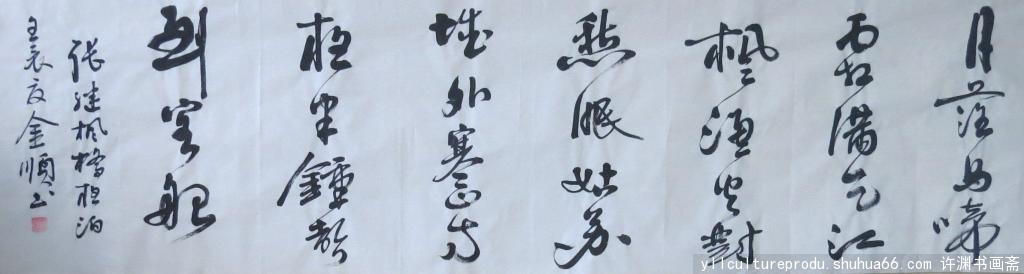 月落乌啼
霜满天江
枫渔火對
愁眠姑苏
城外寒山寺
夜半鍾聲
到客船
张继枫桥夜泊
壬辰夏金順
yllcultureprodu.shuhua66.com 许渊书画斋